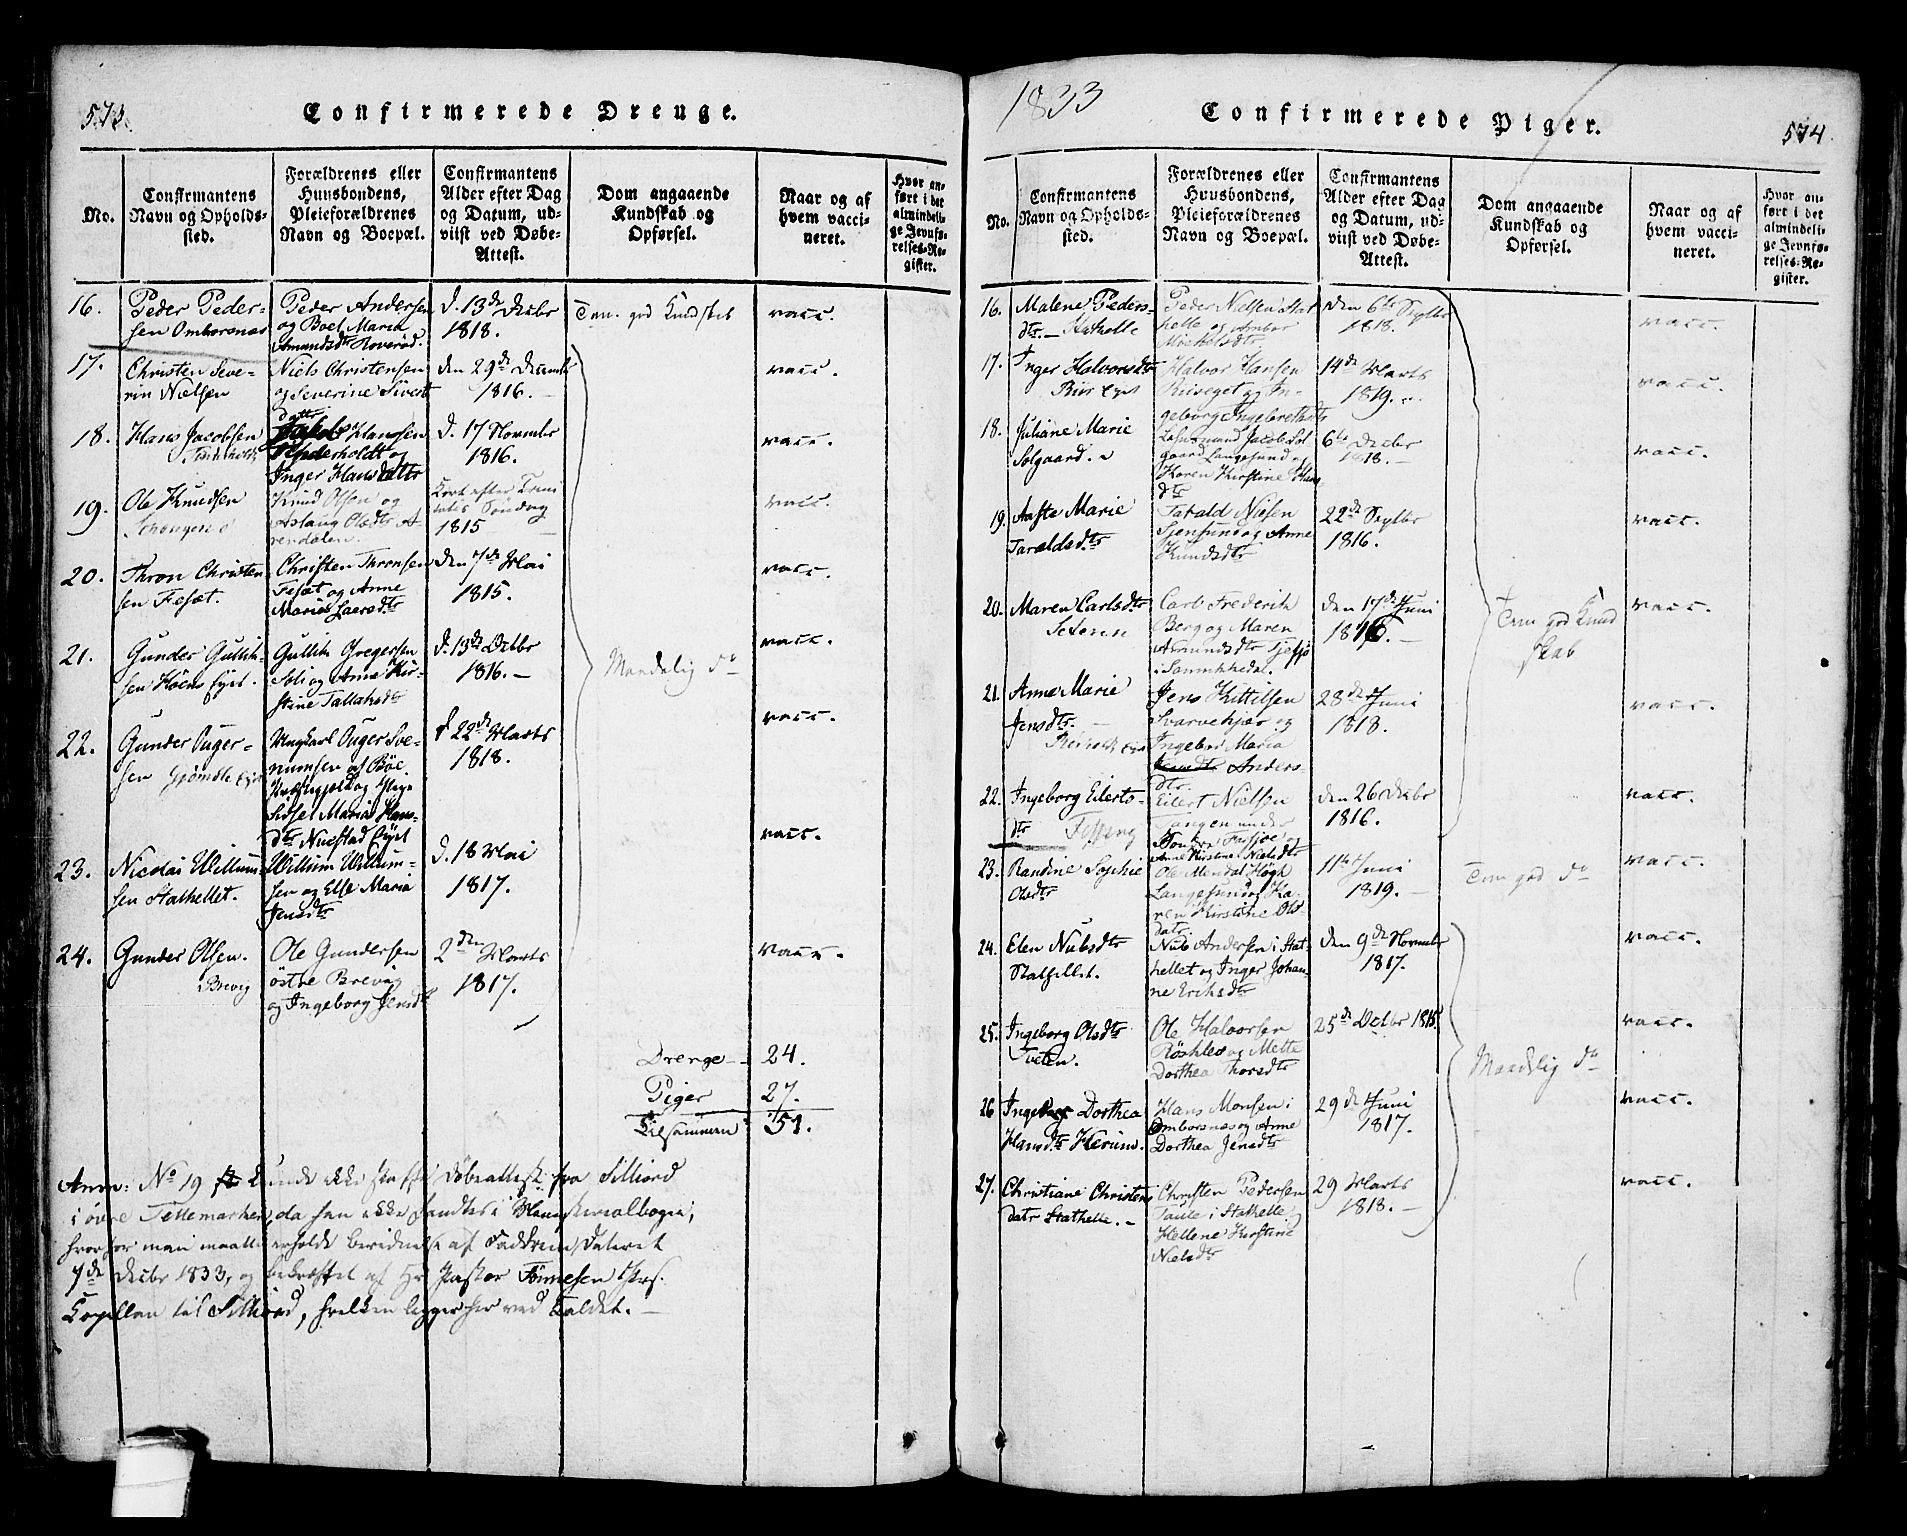 573.
Confirmerede Drenge.
No.
Confirmantens
Navn og Opholds-
sted.
Forældrenes eller
Huusbondens,
Pleieforældrenes
Navn og Boepæl.
Confirmantens
Alder efter Dag
og Datum, ud-
viist ved Døbe-
Attest.
Dom angaaende
Kundskab og
Opførsel.
Naar og af
hvem vacci-
neret.
Hvor an-
ført i det
almindeli-
ge Jevnfø-
relses-Re-
gister.
16.
Peder Peder-
sen Omborsnæs
Peder Andersen
og Boel Maria
Amundsdtr Roverød.
d. 13de Decbr
1818.
Tem. god Kundskab
vacc.
17.
Christen Seve-
rin Nielsen
Niels Christensen
og Severine Sivert
datter
den 29de Decembr
1816.
vacc.
18.
Hans Jacobsen
Jacob Hansen
og
Inger Hansdatter
d. 17 Novembr
1816.
vacc.
19.
Ole Knudsen
Knud Olsen og
Aslaug Olsdtr A-
rendalen.
Søndag
1815
vacc.
20.
Thron Christen
sen Fesæt.
Christen Thronsen
Fesæt og Anne
Marie Laersdtr
den 7de Mai
1815.
vacc.
21.
Gunder Gullik-
sen
Gullik Gregersen
og Anne Kir-
stine Tallaksdtr
d. 13de Octbr
1816.
Maadelig do
vacc.
22.
Gunder Auger-
sen
Ungkarl Auger Sve-
af Böe
og Pige
Sidsel Maria Hans-
dtr
22de Marts
1818.
vacc.
23.
Nicolai Willum-
sen Stathellet.
Willum Willum-
sen og Else Maria
Jensdtr
d. 18 Mai
1817.
vacc.
24.
Gunder Olsen.
Brevig
Ole Gundersen
östre Brevig
og Ingeborg Jensdtr
2den Marts
1817.
vacc.
Drenge - 24.
Piger 27.
Tilsammen 51.
Anm: No 19 kunde ikke Døbeattest fra Silliord
i övre Tellemarken, da han ikke fandtes i Ministerialbogen,
hvorfor man maatte erholde af Fadderne, dateret
7de Decbr 1833, og bekræftet af Hr Pastor Tönnesen pers.
Capellan til Silliord, hvilken ligger her ved Taldet.
1833
Confirmerede Piger.
574.
No.
Confirmantens
Navn og Opholds-
sted.
Forældrenes eller
Huusbondens,
Pleieforældrenes
Navn og Boepæl.
Confirmantens
Alder efter Dag
og Datum, ud-
viist ved Døbe-
Attest.
Dom angaaende
Kundskab og
Opførsel.
Naar og af
hvem vacci-
neret.
Hvor an-
ført i det
almindeli-
ge Jevnfø-
relses-Re-
gister.
16.
Malene Peders-
dtr. - Stathelle
Peder Nielsen Stat
helle og
Michelsdtr
den 6te Septbr
1818.
vacc.
17.
Inger Halvorsdtr
Halvor Hansen
og In-
geborg Ingebretsdtr
14de Marts
1819.
vacc.
18.
Juliane Marie
Solgaard.
Jacob Sol
gaard Langesund og
Karen Kirstine
dtr
6te Decbr
1818.
vacc.
19.
Aaste Marie
Taraldsdtr
Tarald Nielsen
og Anne
Knudsdtr
22de Septbr
1816.
vacc.
20.
Maren Carlsdtr
Carl Frederik
Berg og Maren
Amundsdtr
i
den 17de Juni
1816.
Tem god Kund
skab
vacc.
21.
Anne Marie
Jensdtr.
Jens Kittilsen
Svarvekjær og
Ingebor Maria
Anders-
dtr.
28de Juni
1818.
vacc.
22.
Ingeborg Eilerts-
dtr
Eilert Nielsen
Tangen under
og
Anne Kirstine Nielsdtr
den 26 Decbr
1816.
vacc.
23.
Randine Sophie
Olsdtr
Ole Mendal Högh
Langesund og Ka-
ren Kirstine Ols-
datr.
11te Juni
1819.
Tem god do
vacc.
24.
Elen Nubsdtr
Stathellet.
Nub Andersen i Stat-
hellet og Inger Johan-
ne Eriksdtr
den 9de Novembr
1817.
vacc.
25.
Ingeborg Olsdtr
Tveten.
Ole Halvorsen
og Mette
Dorthea Thorsdtr
25de Octbr 1815.
Maadelig do
vacc.
26
Ingeborg Dorthea
Hansdtr Herum.
Hans Monsen i
Omborsnæs og Anne
Dorthea Jensdtr
29de Juni
1817.
vacc.
27.
Christiane Christens
datr Stathelle.
Christen Pedersen
Taule i Stathelle og
Hellene Kirstine
Nielsdtr
29 Marts
1818.
vacc.